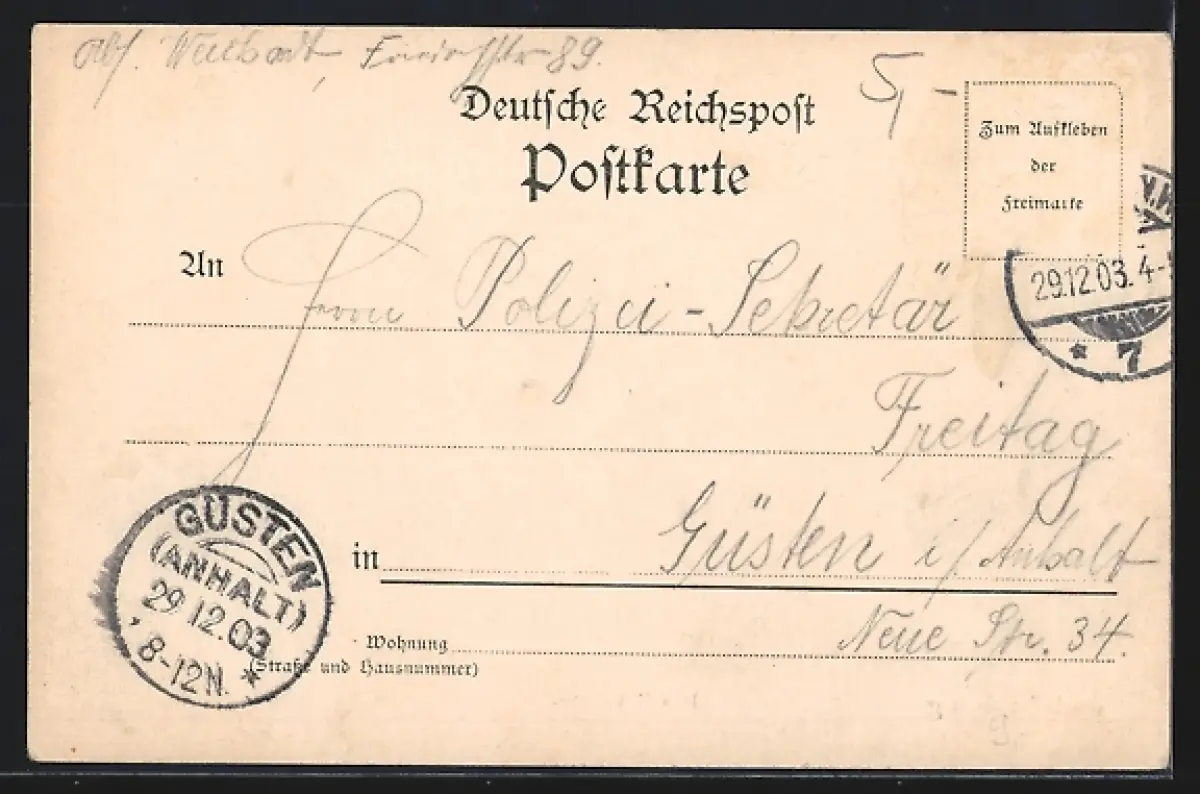 Abs. Friedrichstr 89.
5,-
Deutsche Reichspost
Postkarte
Zum Aufkleben
der
Freimarke
29.12.03. 4-5
* 7
An Herrn Polizei-Sekretär
Freitag
in Güsten i/Anhalt
Wohnung Neue Str. 34.
(Straße und Hausnummer)
GÜSTEN
(ANHALT)
29.12.03
8-12N. *